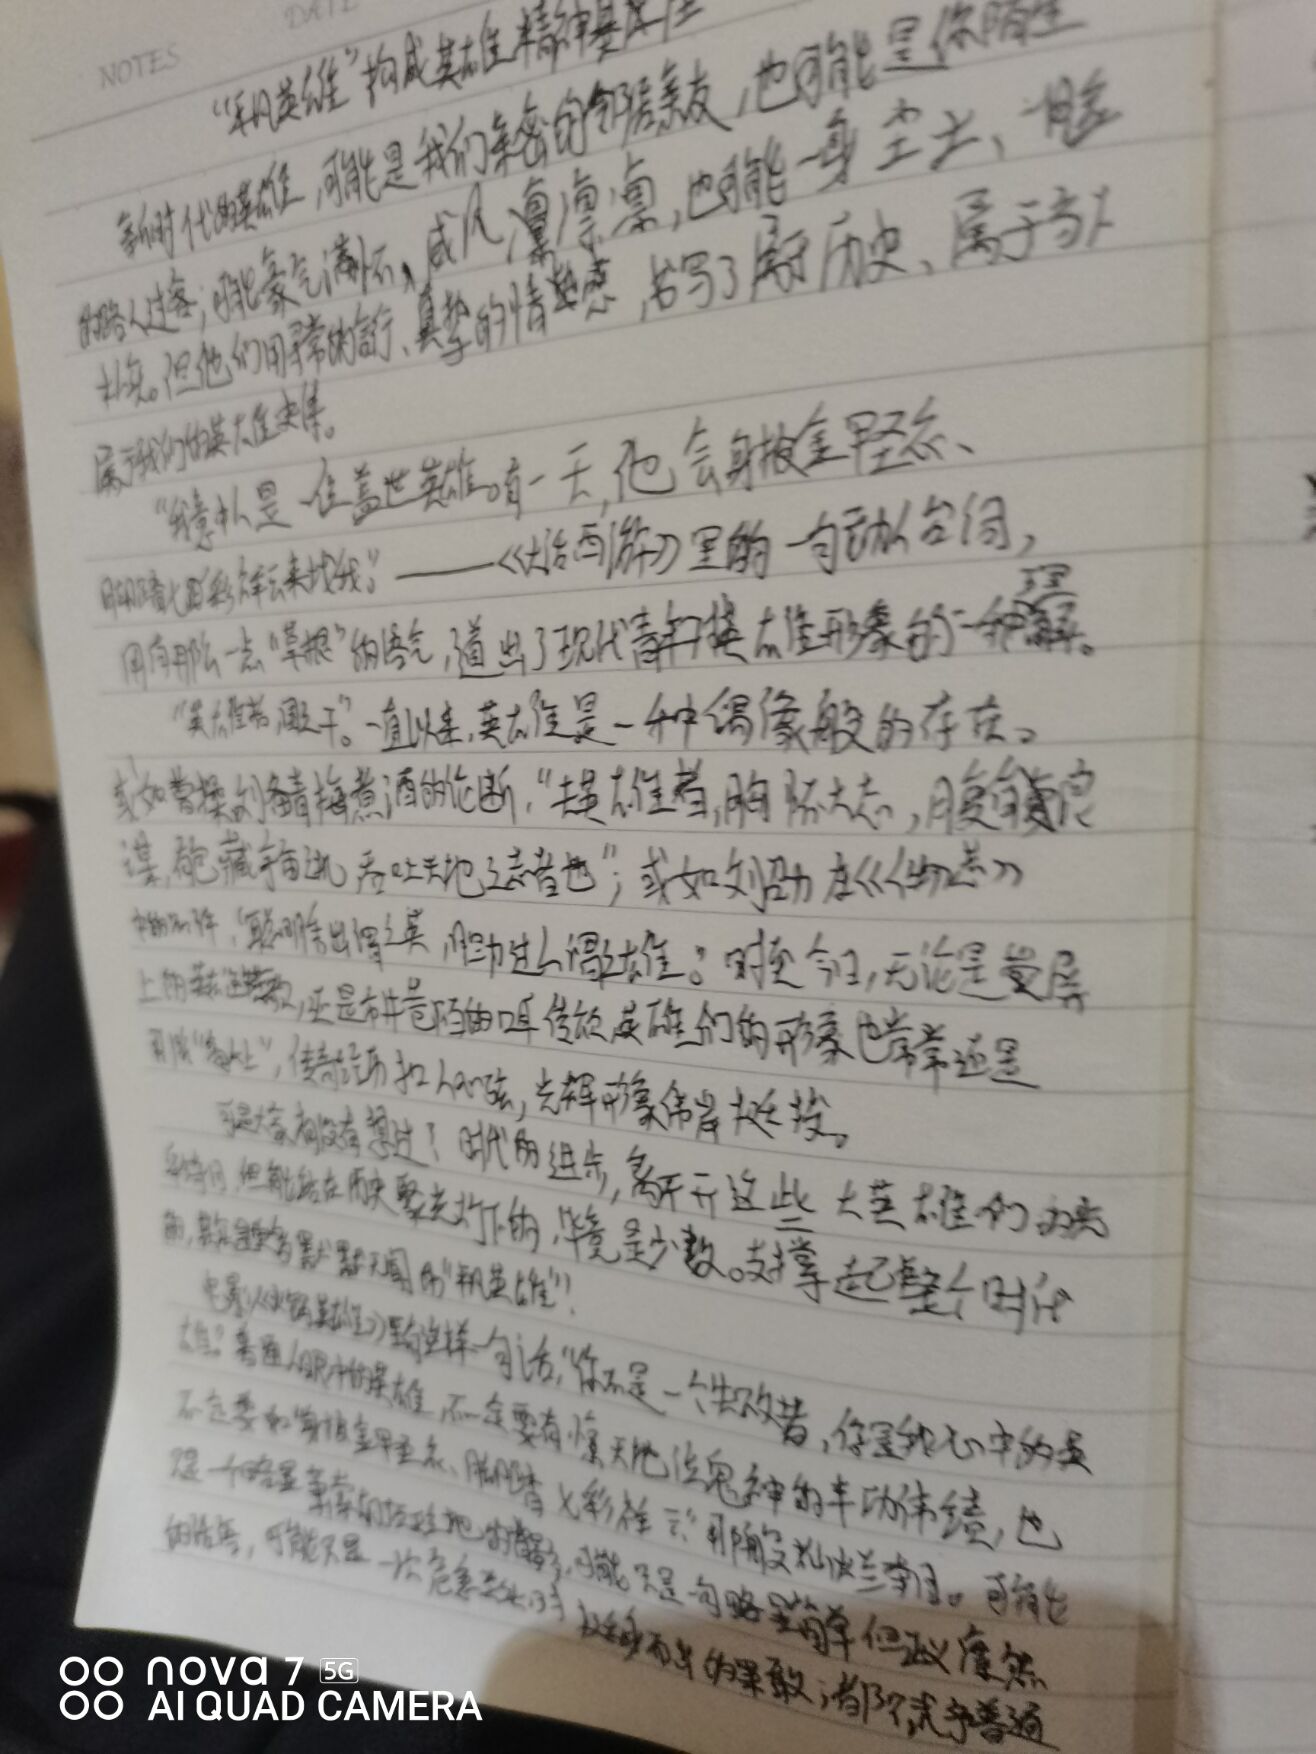 DATE
NOTES
“平凡英雄”构成英雄精神基座
新时代的英雄，可能是我们亲密的邻居亲友，也可能是你陌生
的路人过客；可能豪气满怀、威风凛凛，也可能一身尘土、一脸
朴实。但他们用寻常的言行、真挚的情感，书写了属于历史、属于
属于我们的英雄史集。
“我意中人是一位盖世英雄。有一天，他会身披金甲圣衣、
脚踏七彩祥云来找我。”——《大话西游》里的一句动人台词，
用有那么一点“草根”的语气，道出了现代青年对英雄形象的一种理解。
“英雄者，国之干。”一直以来，英雄是一种偶像般的存在。
或如曹操刘备青梅煮酒的论断，“夫英雄者，胸怀大志，腹有良
谋，包藏宇宙之机，吞吐天地之志者也”；或如刘劭在《人物志》
中的，“聪明秀出谓之英，胆力过人谓之雄。”时至今日，无论是荧屏
上的英雄，还是市井巷陌的口耳传颂，英雄们的形象也常常还是
“高大上”，传奇经历扣人心弦，光辉形象伟岸挺拔。
可是大家有没有想过？时代的进步，离不开这些大英雄们的
，但能站在历史聚光灯下的，毕竟是少数。支撑起整个时代
的，其实是更多默默无闻的“平凡英雄”！
电影《烈火英雄》里有这样一句话，“你不是一个失败者，你是我心中的英
雄。”普通人眼中的英雄，不一定要有惊天地泣鬼神的丰功伟绩，也
不一定要如“身披金甲圣衣、脚踏七彩祥云”那般光。可能
是一个，可能只是一句略显简单但正义凛然
的话语，可能只是一次危急关头时挺身而出的果敢；都予普通
nova 7 5G
AI QUAD CAMERA